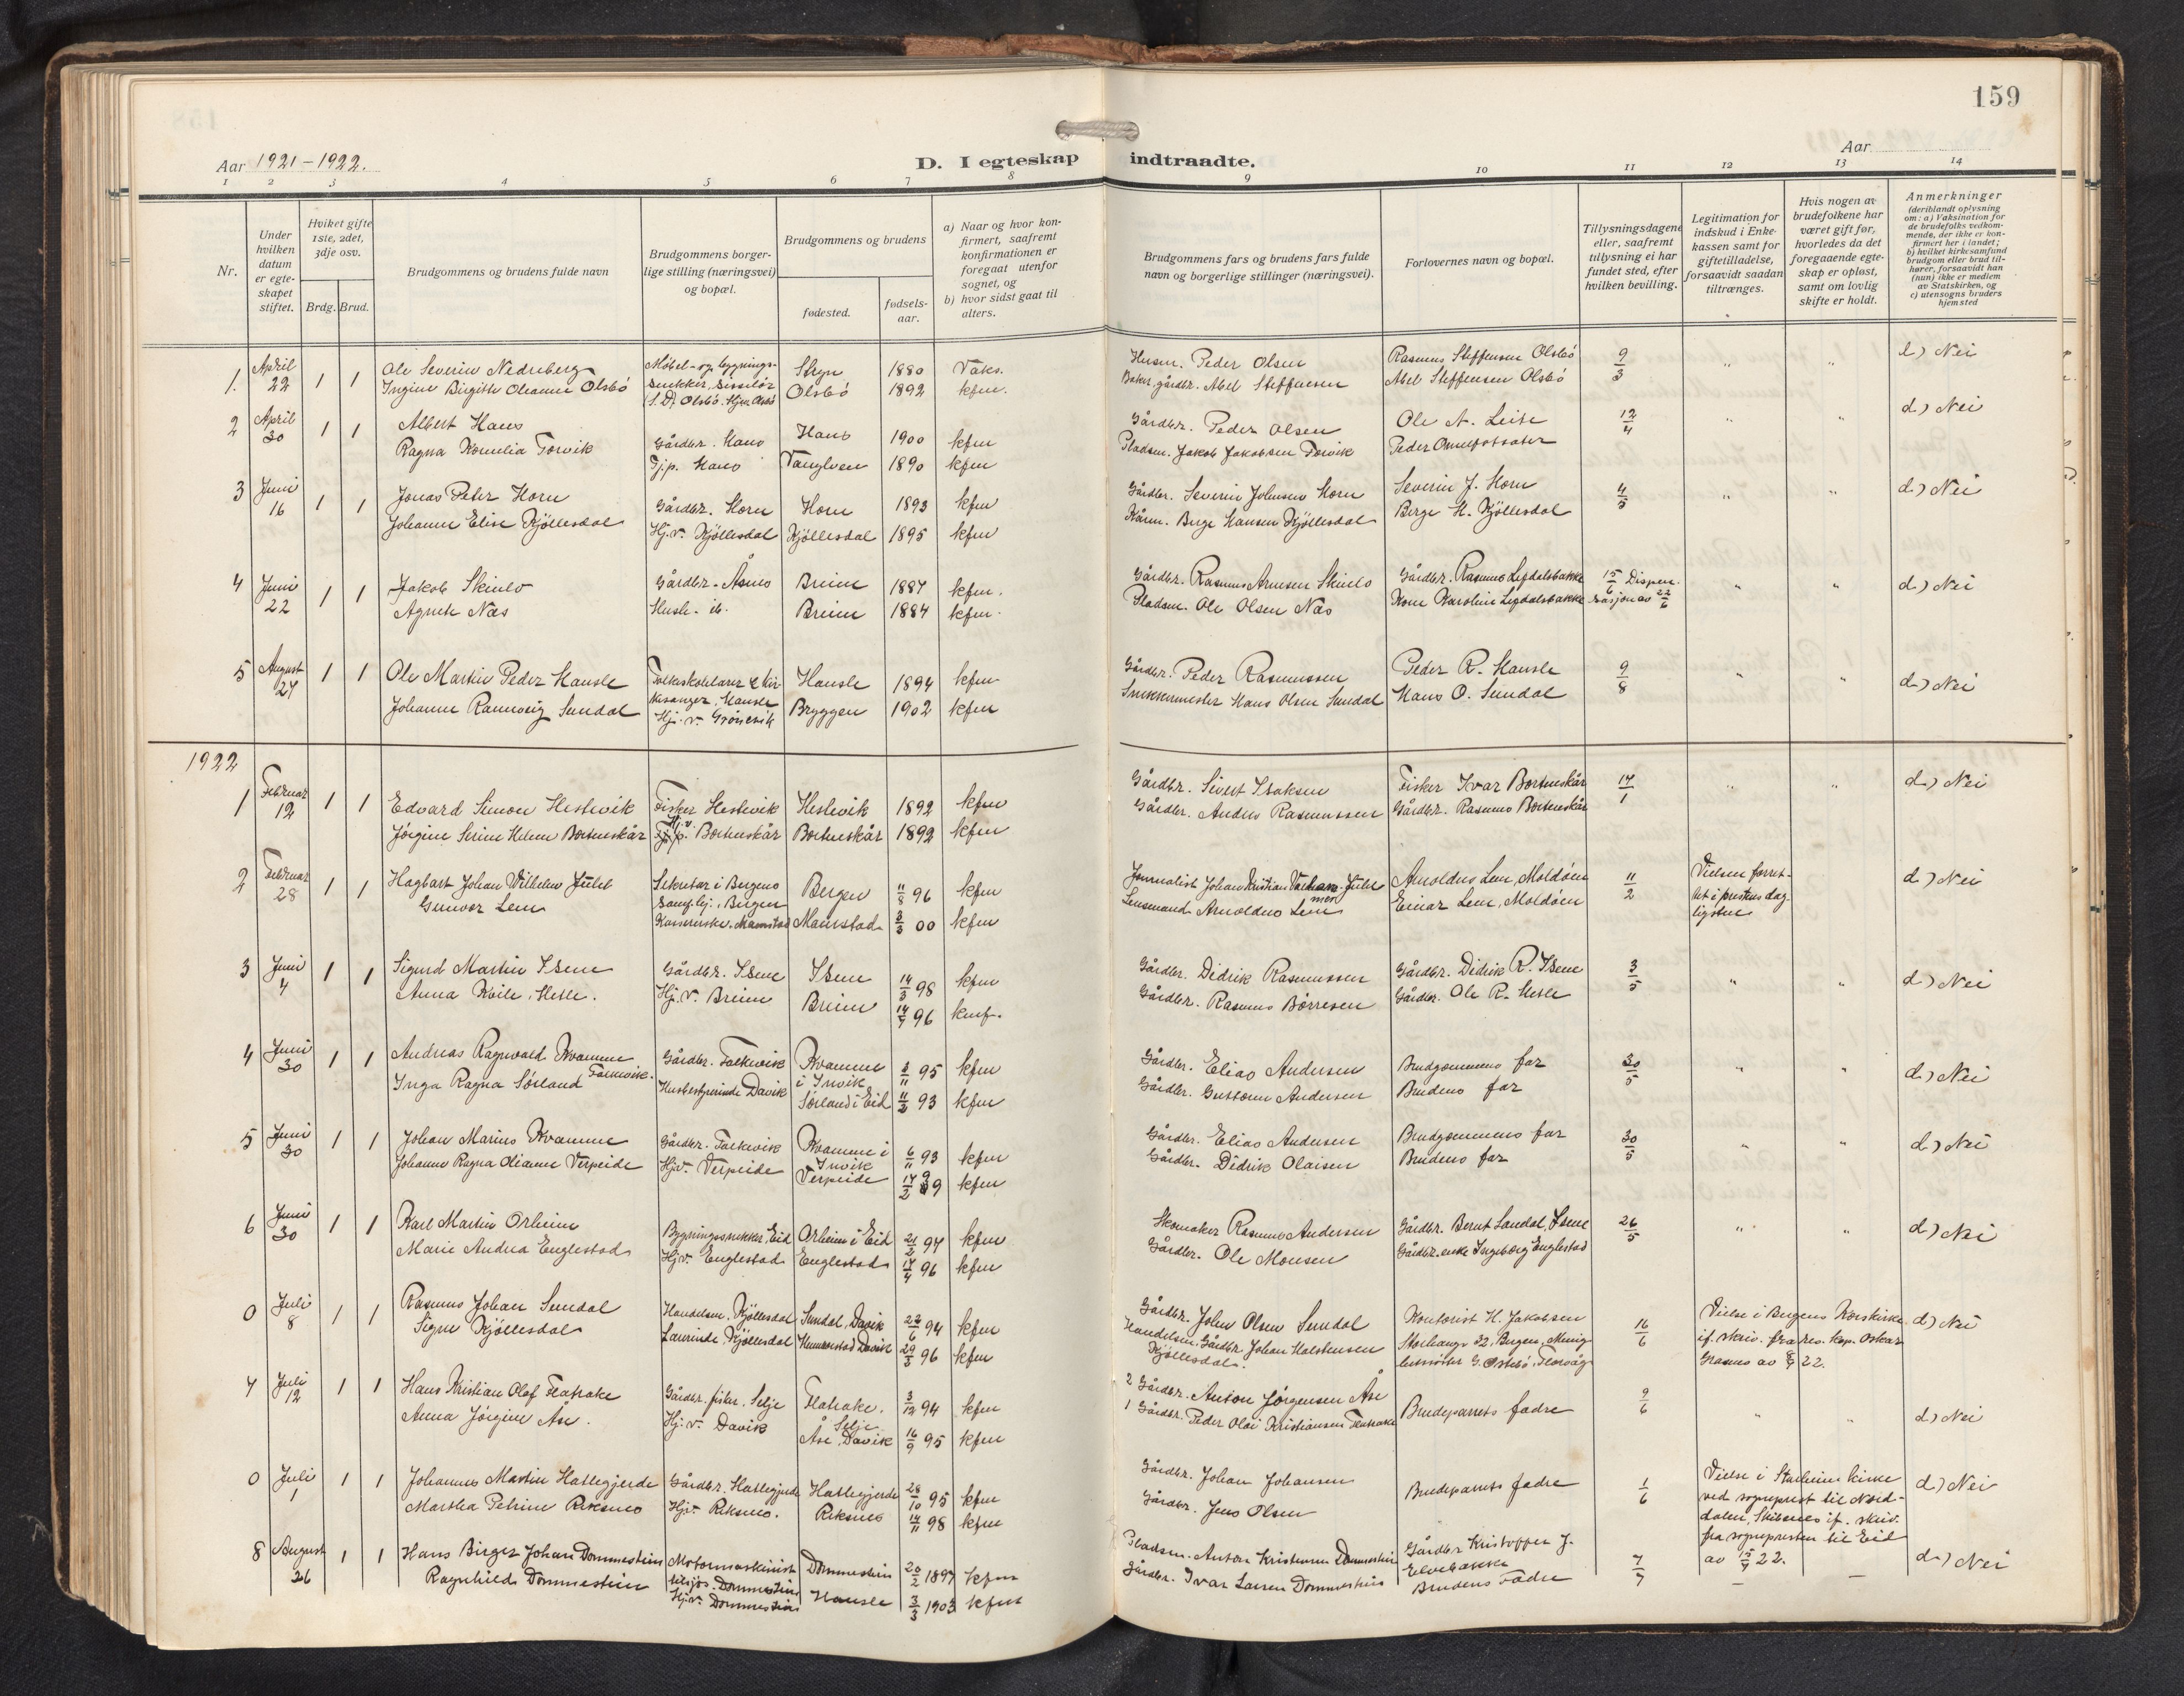 159
Aar 1921-1922.
D. I egteskap indtraadte.
Aar
1 2 3 4 5 6 7 8 9 10 11 12 13 14
Nr.
Under hvilken datum er egteskapet stiftet.
Hviket gifte 1ste, 2det, 3dje osv.
Brdg. Brud.
Brudgommens og brudens fulde navn
Brudgommens borgerlige stilling (næringsvei) og bopæl.
Brudgommens og brudens
fødested.
fødselsaar.
a) Naar og hvor konfirmert, saafremt konfirmationen er foregaat utenfor sognet, og
b) hvor sidst gaat til alters.
Brudgommens fars og brudens fars fulde navn og borgerlige stillinger (næringsvei).
Forlovernes navn og bopæl.
Tillysningsdagene eller, saafremt tillysning ei har fundet sted, efter hvilken bevilling.
Legitimation for indskud i Enkekassen samt for giftetilladelse, forsaavidt saadan tiltrænges.
Hvis nogen av brudefolkene har været gift før, hvorledes da det foregaaende egteskap er opløst, samt om lovlig skifte er holdt.
Anmerkninger (deriblandt oplysning om: a) Vaksination for de brudefolks vedkommende, der ikke er konfirmert her i landet; b) hvilket kirkesamfund brudgom eller brud tilhører, forsaavidt han (hun) ikke er medlem av Statskirken, og c) utensogns bruders hjemsted
1. April 22 1 1 Ole Severin Nedreberg Møbel- og bygnings- Stryn 1880 Vaks. Husm. Peder Olsen Rasmus Steffensen Olsbö 9/3 " " d) Nei
Ingine Birgitte Oleanne Olsbö snekker, Olsbö 1892 kfm. gårdbr. Abel Steffensen Abel Steffensen Olsbö
2 April 30 1 1 Albert Haus Gårdbr. Haus Haus 1900 kfm Gårdbr. Peder Olsen Ole A. Leite 12/4 " " d) Nei
Ragna Kornelia Torvik Tj.p. Haus 1890 kfm Pladsm. Jakob Jakobsen Torvik Peder
3 Juni 16 1 1 Jonas Peter Horn Gårdbr. Horn Horn 1893 kfm Gårdbr. Severin Johnsen Horn Severin J. Horn 4/5 " " d) Nei
Johanne Elise Kjöllesdal Hj.v. Kjöllesdal Kjöllesdal 1895 kfm Kårm. Berge Hansen Kjöllesdal Berge H. Kjöllesdal
4 Juni 22 1 1 Jakob Skinlo Gårdbr. Åsnes Breim 1887 kfm. Gårdbr. Rasmus Arnesen Skinlo Gårdbr. Rasmus Lefdalsbakke 15/6 Dispen- " " d) Nei
Agnete Nås Hush. ib. Breim 1884 kfm. Pladsm. Ole Olsen Nås Kone Karoline Lefdalsbakke sasjon av 22/6
5 August 27 1 1 Ole Martin Peder Hausle Folkeskolelærer & kir- Hausle 1894 kfm Gårdbr. Peder Rasmussen Peder R. Hausle 9/8 " " d) Nei
kesanger, Hausle
Johanne Rannveig Sundal Hj.v. Grönevik Bryggen 1902 kfm Snekkermester Hans Olsen Sundal Hans O. Sundal
1922
1 Februar 12 1 1 Edvard Simon Hestevik Fisker Hestevik Hestevik 1892 kfm Gårdbr. Sivert Isaksen Fisker Ivar Bortneskår 17/1 " " d) Nei
Jörgine Serine Helene Bortneskår Hj.v. Bortneskår Bortneskår 1892 kfm Gårdbr. Andreas Rasmussen Gårdbr. Rasmus Bortneskår
2 Februar 28 1 1 Hagbart Johan Wilhelm Juhl Sekretær i Bergens Bergen 11/8 96 kfm Journalist Johan Kristian Arnoldus Lem, Moldöen 11/2 Vielsen forret- d) Nei
Gunvor Lem Kasserske. Maurstad Maurstad 3/3 00 kfm Lensmand Arnoldus Lem Einar Lem, Moldöen tet i prestens dagligstue
3 Juni 4 1 1 Sigurd Martin Isene Gårdbr. Isene Isene 14/3 98 kfm Gårdbr. Didrik Rasmussen Gårdbr. Didrik R. Isene 3/5 " " d) Nei
Anna Kvile Hesle. Hj.v. Breim Breim 14/7 96 konf. Gårdbr. Rasmus Börresen Gårdbr. Ole R. Hesle
4 Juni 30 1 1 Andreas Ragnvald Kvamme Falkevik. Gårdbr. Falkevik Kvamme i Invik 95 kfm Gårdbr. Elias Andersen Brudgommens far 30/5 " " d) Nei
Inga Ragna Sörland Husbestyrerinde Davik Sörland i Eid 11/2 93 kfm Gårdbr. Guttorm Andersen Brudens far
5 Juni 30 1 1 Johan Marius Kvamme Gårdbr. Falkevik Kvamme i Invik 6/11 93 kfm Gårdbr. Elias Andersen Brudgommens far 30/5 " " d) Nei
Johanne Ragna Olianne Verpeide Hj.v. Verpeide Verpeide 17/2 99 kfm Gårdbr. Didrik Olaisen Brudens far
6 Juni 30 1 1 Karl Martin Orheim Bygningssnekker, Eid Orheim i Eid 21/2 97 kfm Skomaker Rasmus Andersen Gårdbr. Bernt Sandal, Isene 26/5 " " d) Nei
Marie Andrea Englestad Hj.v. Englestad Englestad 17/4 96 kfm Gårdbr. Ole Monsen Gårdbr. enke Ingeborg Englestad
0 Juli 8 1 1 Rasmus Johan Sundal Handelsm. Kjöllesdal Sundal, Davik 94 kfm Gårdbr. John Olsen Sundal Kontorist H. Jakobsen 16/6 Vielse i Bergens Korskirke d) Nei
Signe Kjöllesdal Lærerinde, Kjöllesdal Davik 29/3 96 kfm Handelsm. Gårdbr. Johan Halstensen Kjöllesdal. 32, Bergen, Menighetssöster G. Flörvåg if. skriv. fra res. kap. Oskar av 8/7 22.
7 Juli 12 1 1 Hans Kristian Olaf Flatrake Gårdbr. fisker. Selje Flatrake. Selje 3/12 94 kfm 2 Gårdbr. Anton Jörgensen Åse Brudeparrets fædre 9/6 " " d) Nei
Anna Jörgine Åse. Hj.v. Davik Åse, Davik 16/9 95 kfm 1 Gårdbr. Peder Olai Kristiansen Flatrake
0 Juli 1 1 1 Johannes Martin Hattegjerde Gårdbr. Hattegjerde Hattegjerde 28/10 95 kfm Gårdbr. Johan Johansen Brudeparrets fædre 1/6 Vielse i Stårheim kirke d) Nei
Martha Petrine Reksnes Hj.v. Reksnes. Reksnes 14/11 98 kfm Gårdbr. Jens Olsen ved sogneprest til Nord- dalen, if. skriv. fra sognepresten til Eid av 15/7 22.
8 August 26 1 1 Hans Birger Johan Dommestein Motormaskinist Dommestein 20/2 1897 kfm Pladsm. Anton Kristensen Dommestein Gårdbr. Kristoffer J. Elvebakke 7/7 – – d) Nei
Ragnhild Dommestein Hj.v. Dommestein Hausle 3/3 1903 kfm Gårdbr. Ivar Larsen Dommestein Brudens Fader